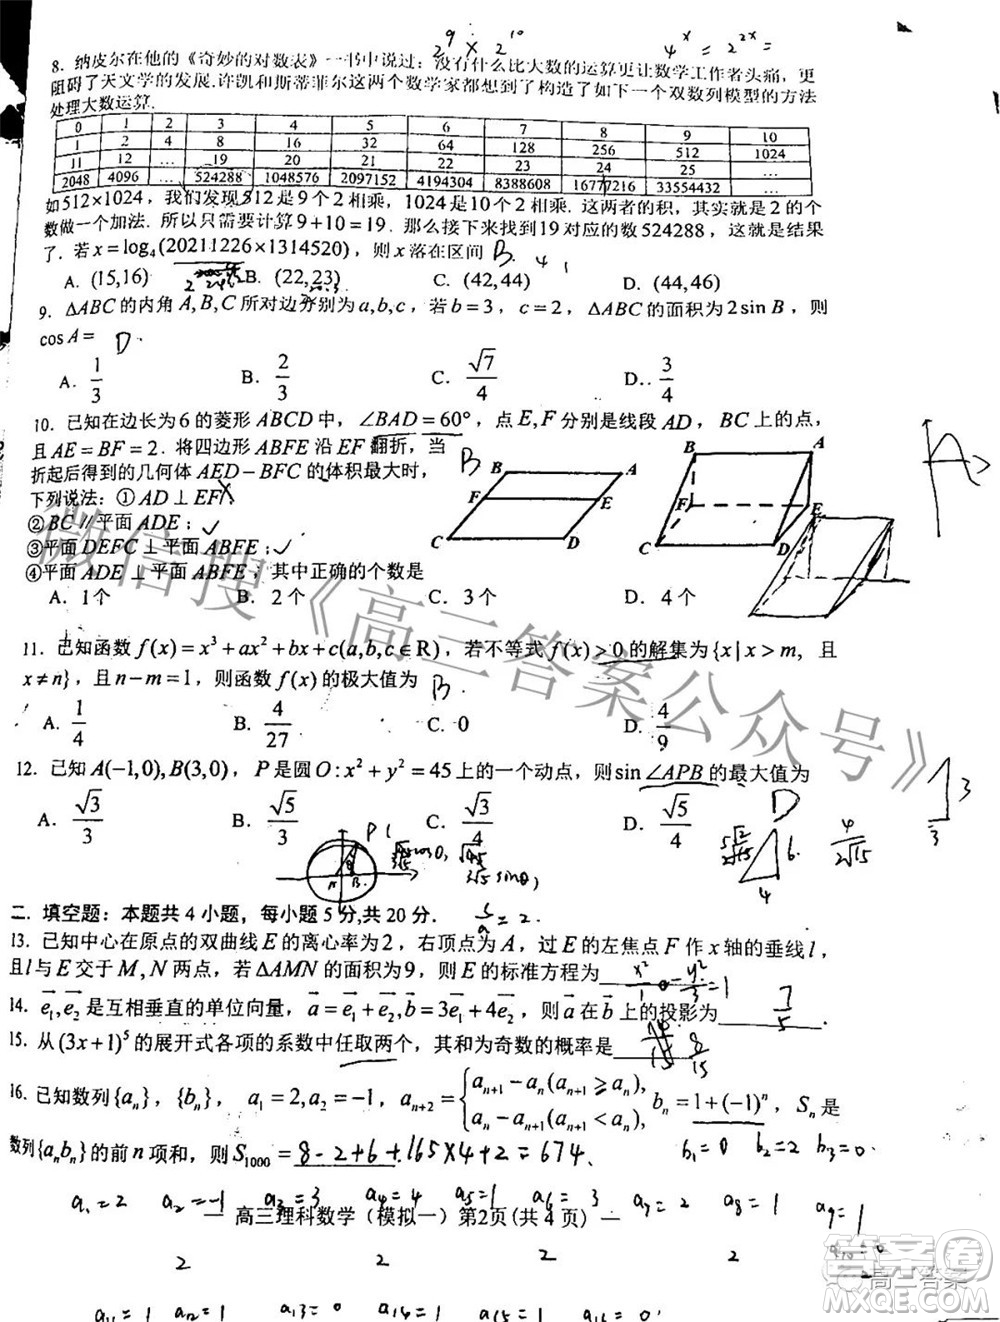 2⁹ × 2¹⁰  4ˣ = 2²ˣ =
8. 纳皮尔在他的《奇妙的对数表》一书中说过：没有什么比大数的运算更让数学工作者头痛，更
阻碍了天文学的发展.许凯和斯蒂菲尔这两个数学家都想到了构造了如下一个双数列模型的方法
处理大数运算.
0 1 2 3 4 5 6 7 8 9 10
1 2 4 8 16 32 64 128 256 512 1024
11 12 … 19 20 21 22 23 … 25 …
2048 4096 … 524288 1048576 2097152 4194304 8388608 16777216 33554432 …
如512×1024，我们发现512是9个2相乘，1024是10个2相乘. 这两者的积，其实就是2的个
数做一个加法. 所以只需要计算9+10=19. 那么接下来找到19对应的数524288，这就是结果
了. 若x=log₄(20211226×1314520)，则x落在区间 B.
A. (15,16) B. (22,23) C. (42,44) D. (44,46)
9. ΔABC的内角A,B,C所对边分别为a,b,c，若b=3，c=2，ΔABC的面积为2sinB，则
cosA= D.
A. 1/3 B. 2/3 C. √7/4 D. 3/4
10. 已知在边长为6的菱形ABCD中，∠BAD=60°，点E,F分别是线段AD，BC上的点，
且AE=BF=2. 将四边形ABFE沿EF翻折，当
折起后得到的几何体AED-BFC的体积最大时， B
下列说法：①AD⊥EF；
②BC∥平面ADE；
③平面DEFC⊥平面ABFE；
④平面ADE⊥平面ABFE；其中正确的个数是
B A F E C D
B A F E C D
A. 1个 B. 2个 C. 3个 D. 4个
11. 已知函数f(x)=x³+ax²+bx+c(a,b,c∈R)，若不等式f(x)>0的解集为{x|x>m，且
x≠n}，且n-m=1，则函数f(x)的极大值为 B.
A. 1/4 B. 4/27 C. 0 D. 4/9
12. 已知A(-1,0),B(3,0)，P是圆O:x²+y²=45上的一个动点，则sin∠APB的最大值为
D
A. √3/3 B. √5/3 C. √3/4 D. √5/4
二. 填空题：本题共4小题，每小题5分,共20分.
13. 已知中心在原点的双曲线E的离心率为2，右顶点为A，过E的左焦点F作x轴的垂线l，
且l与E交于M,N两点，若ΔAMN的面积为9，则E的标准方程为
14. e₁,e₂是互相垂直的单位向量，a=e₁+e₂,b=3e₁+4e₂，则a在b上的投影为 7/5
15. 从(3x+1)⁵的展开式各项的系数中任取两个，其和为奇数的概率是 8/15
16. 已知数列{aₙ}，{bₙ}，a₁=2,a₂=-1，aₙ₊₂={aₙ₊₁-aₙ(aₙ₊₁≥aₙ), aₙ-aₙ₊₁(aₙ₊₁<aₙ), bₙ=1+(-1)ⁿ，Sₙ是
数列{aₙbₙ}的前n项和，则S₁₀₀₀= 8-2+6+165×4+2=674.
b₁=0 b₂=2 b₃=0
a₁=2 a₂=-1 a₃=3 a₄=4 a₅=1 a₆=3 a₇=2 a₈=1 a₉=1
— 高三理科数学（模拟一）第2页(共4页) —
2 2 2 2
a₁₁=1 a₁₂=1 a₁₃=0 a₁₄=1 a₁₅=1 a₁₆=0
微信搜《高三答案公众号》
答案圈
高三答案
MXQE.COM